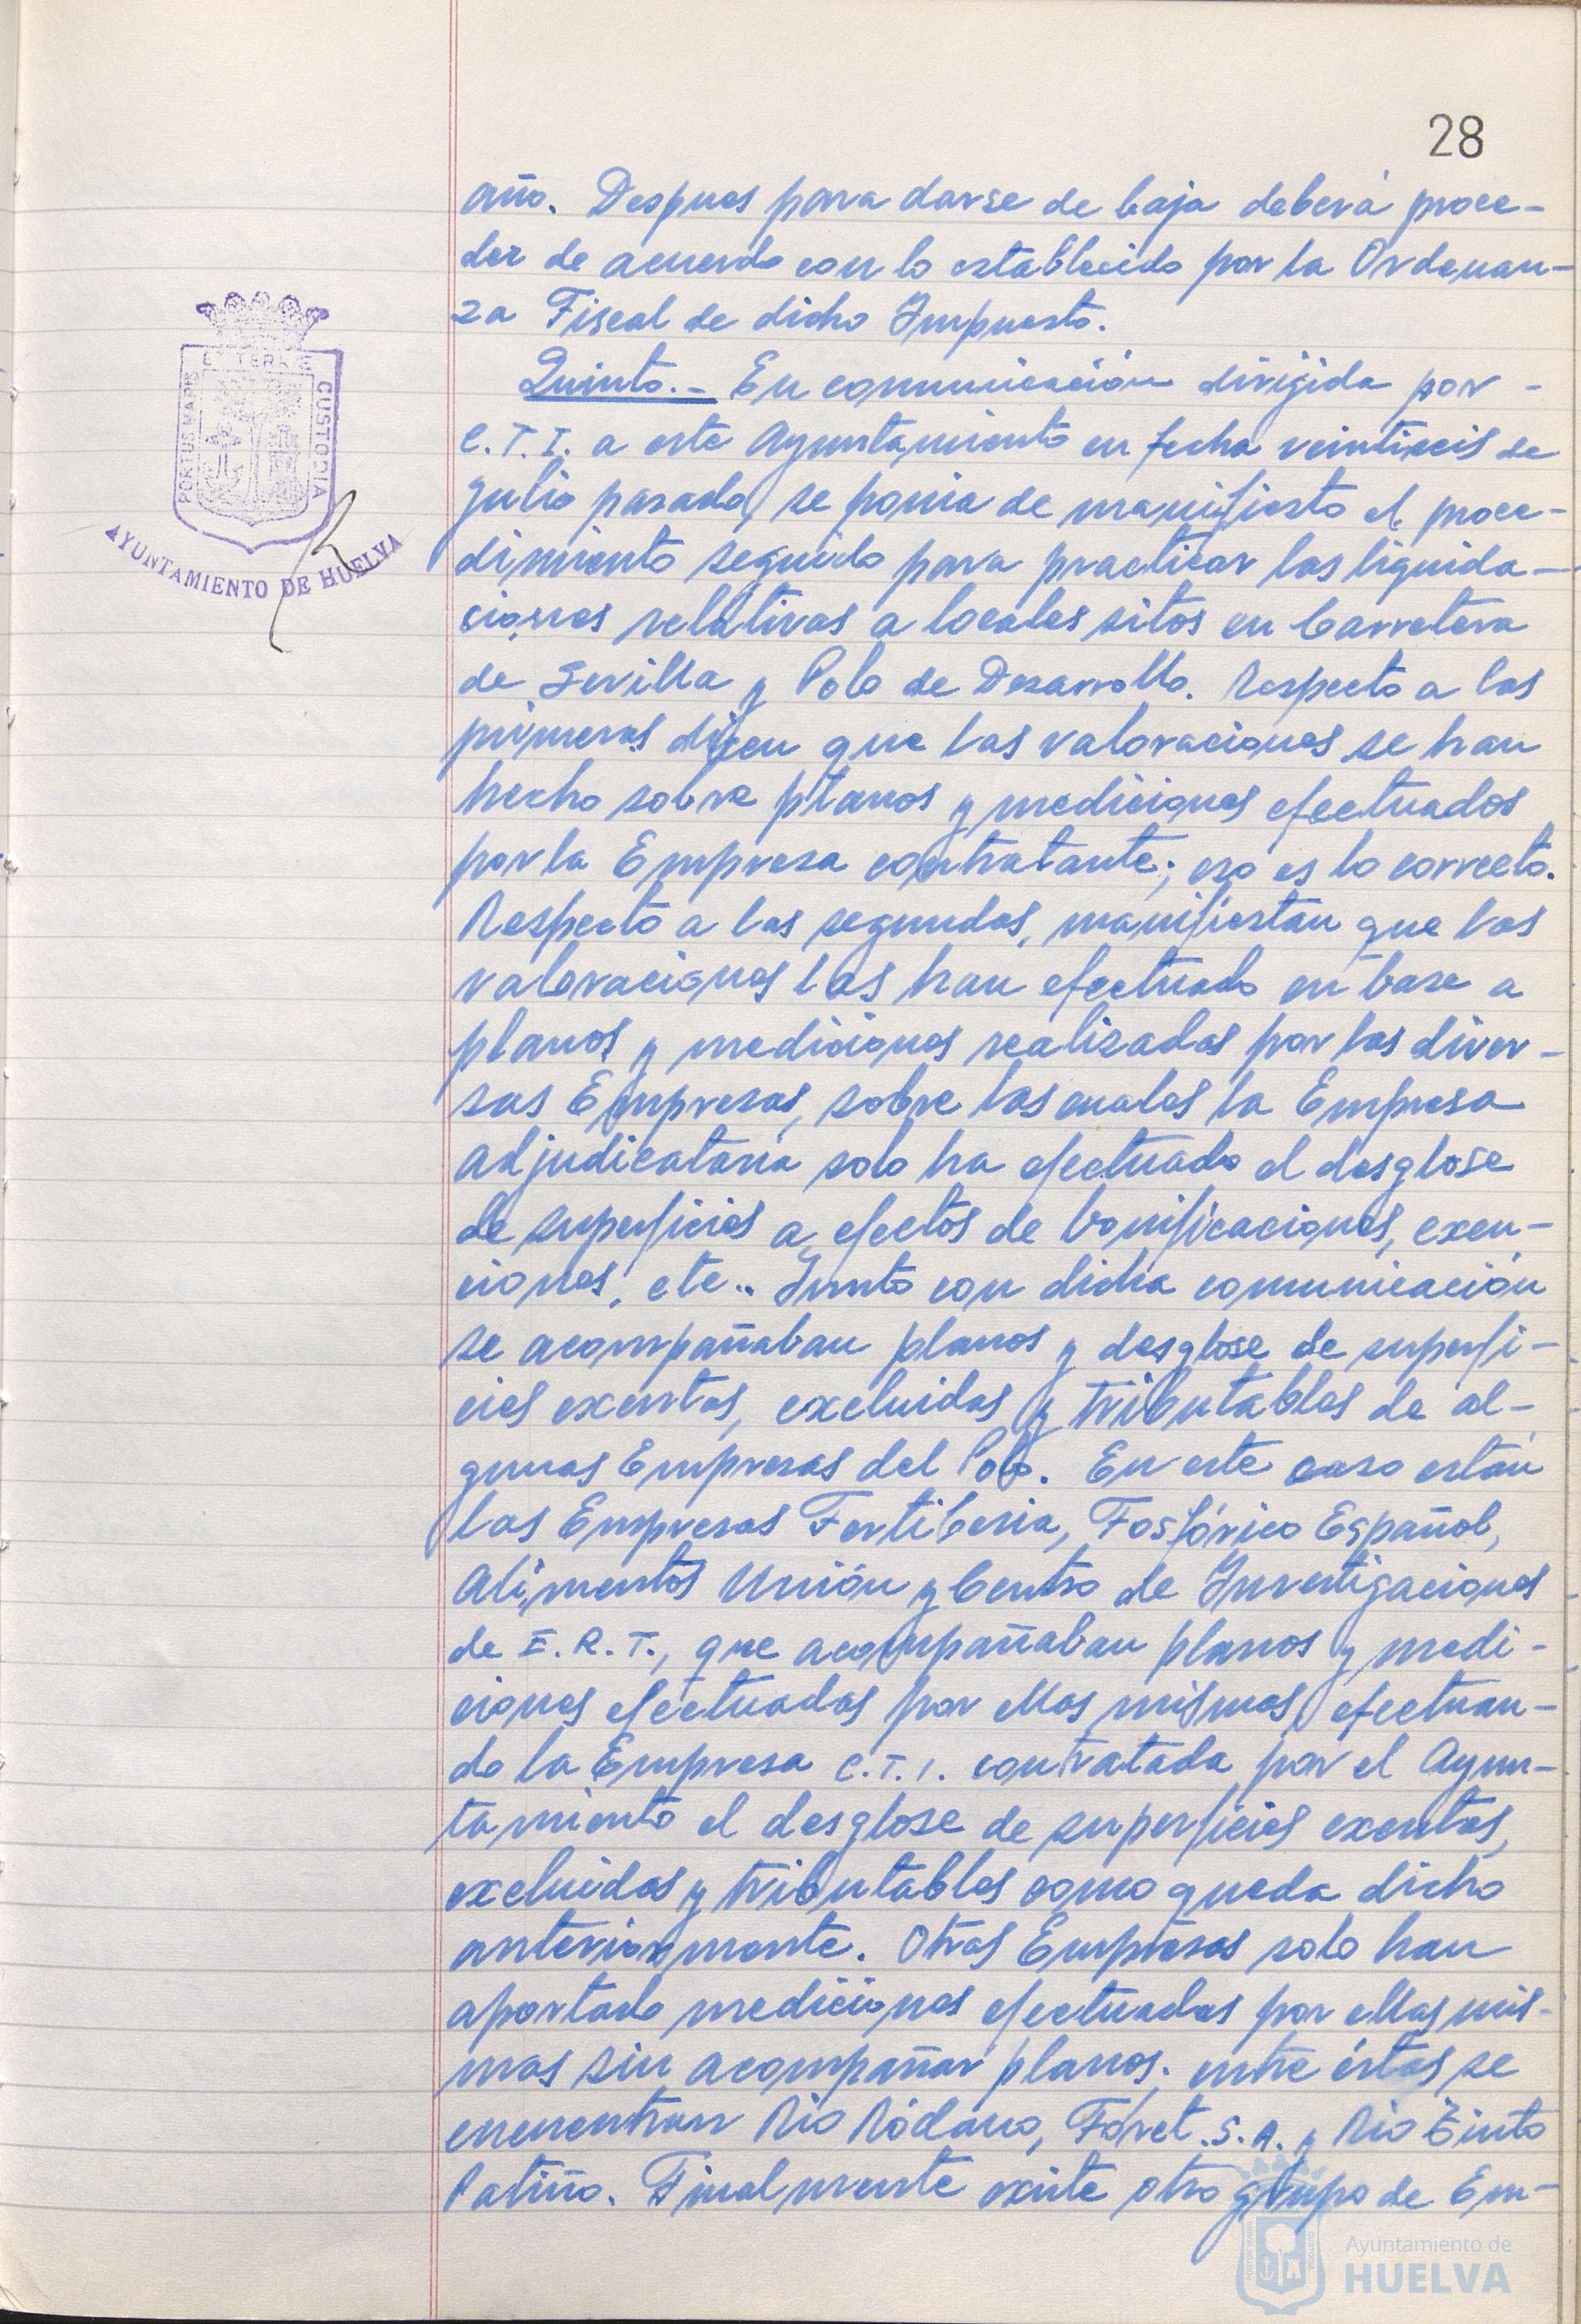 28
año. Despues para darse de baja deberá proce-
der de acuerdo con lo establecido por la Ordenan-
za Fiscal de dicho Impuesto.
Quinto.- En comunicación dirigida por -
C.T.I. a este Ayuntamiento en fecha veintiseis de
Julio pasado, se ponia de manifiesto el proce-
dimiento seguido para practicar las liquida-
ciones relativas a locales sitos en Carretera
de Sevilla y Polo de Desarrollo. Respecto a las
primeras dicen que las valoraciones se han
hecho sobre planos y mediciones efectuados
por la Empresa contratante; eso es lo correcto.
Respecto a las segundas, manifiestan que las
valoraciones las han efectuado en base a
planos y mediciones realizadas por las diver-
sas Empresas, sobre las cuales la Empresa
adjudicataria solo ha efectuado el desglose
de superficies a efectos de bonificaciones, exen-
ciones, etc.. Junto con dicha comunicación
se acompañaban planos y desglose de superfi-
cies exentas, excluidas y tributables de al-
gunas Empresas del Polo. En este caso están
las Empresas Fertiberia, Fosfórico Español,
Alimentos Unión y Centro de Investigaciones
de E.R.T., que acompañaban planos y medi-
ciones efectuadas por ellas mismas, efectuan-
do la Empresa C.T.I. contratada por el Ayun-
tamiento el desglose de superficies exentas,
excluidas y tributables como queda dicho
anteriormente. Otras Empresas solo han
aportado mediciones efectuadas por ellas mis-
mas sin acompañar planos; entre éstas se
encuentran Rio Ródano, Foret S.A. y Rio Tinto
Patiño. Finalmente exite otro grupo de Em-
PORTUS MARIS
ET TERRAE
CUSTODIA
AYUNTAMIENTO DE HUELVA
Ayuntamiento de
HUELVA